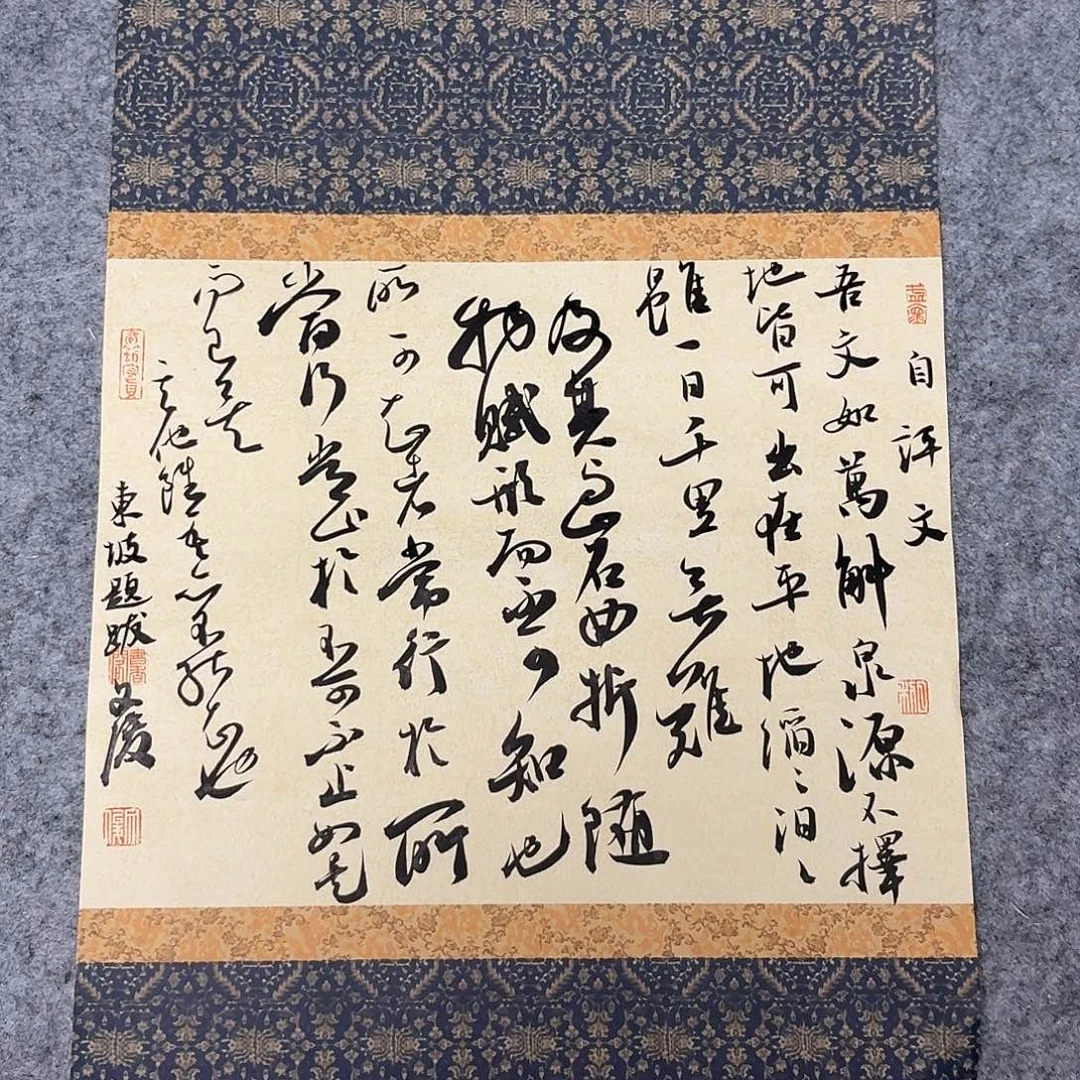 自評文
吾文如萬斛泉源不擇
地皆可出在平地滔〻汩〻
雖一日千里無難
及其与山石曲折随
物賦形而不可知也
所可知者常行於所
當行常止於不可不止如是
而已矣
其他雖吾亦不能知也
東坡題跋